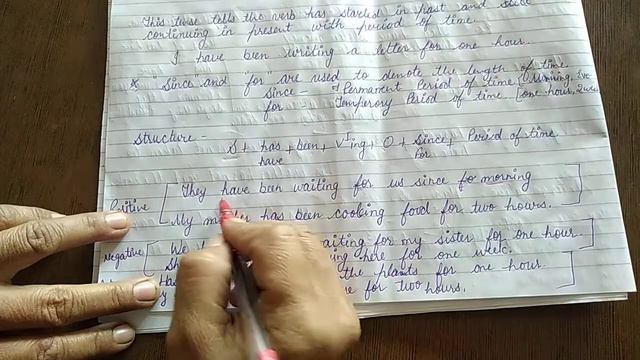 This tense tells the verb has started in past and still
continuing in present with period of time.
I have been writing a letter for one hour.
* "Since" and "for" are used to denote the length of time.
Since - Permanent Period of time [Morning,
for - Temperory Period of time [one hour, 2
Structure - S + has + been + V ing + O + Since + Period of time
have for
They have been waiting for us since morning
Positive
My mother has been cooking food for two hours.
Negative We waiting for my sister for one hour.
here for one week.
the plants for one hour
for two hours.